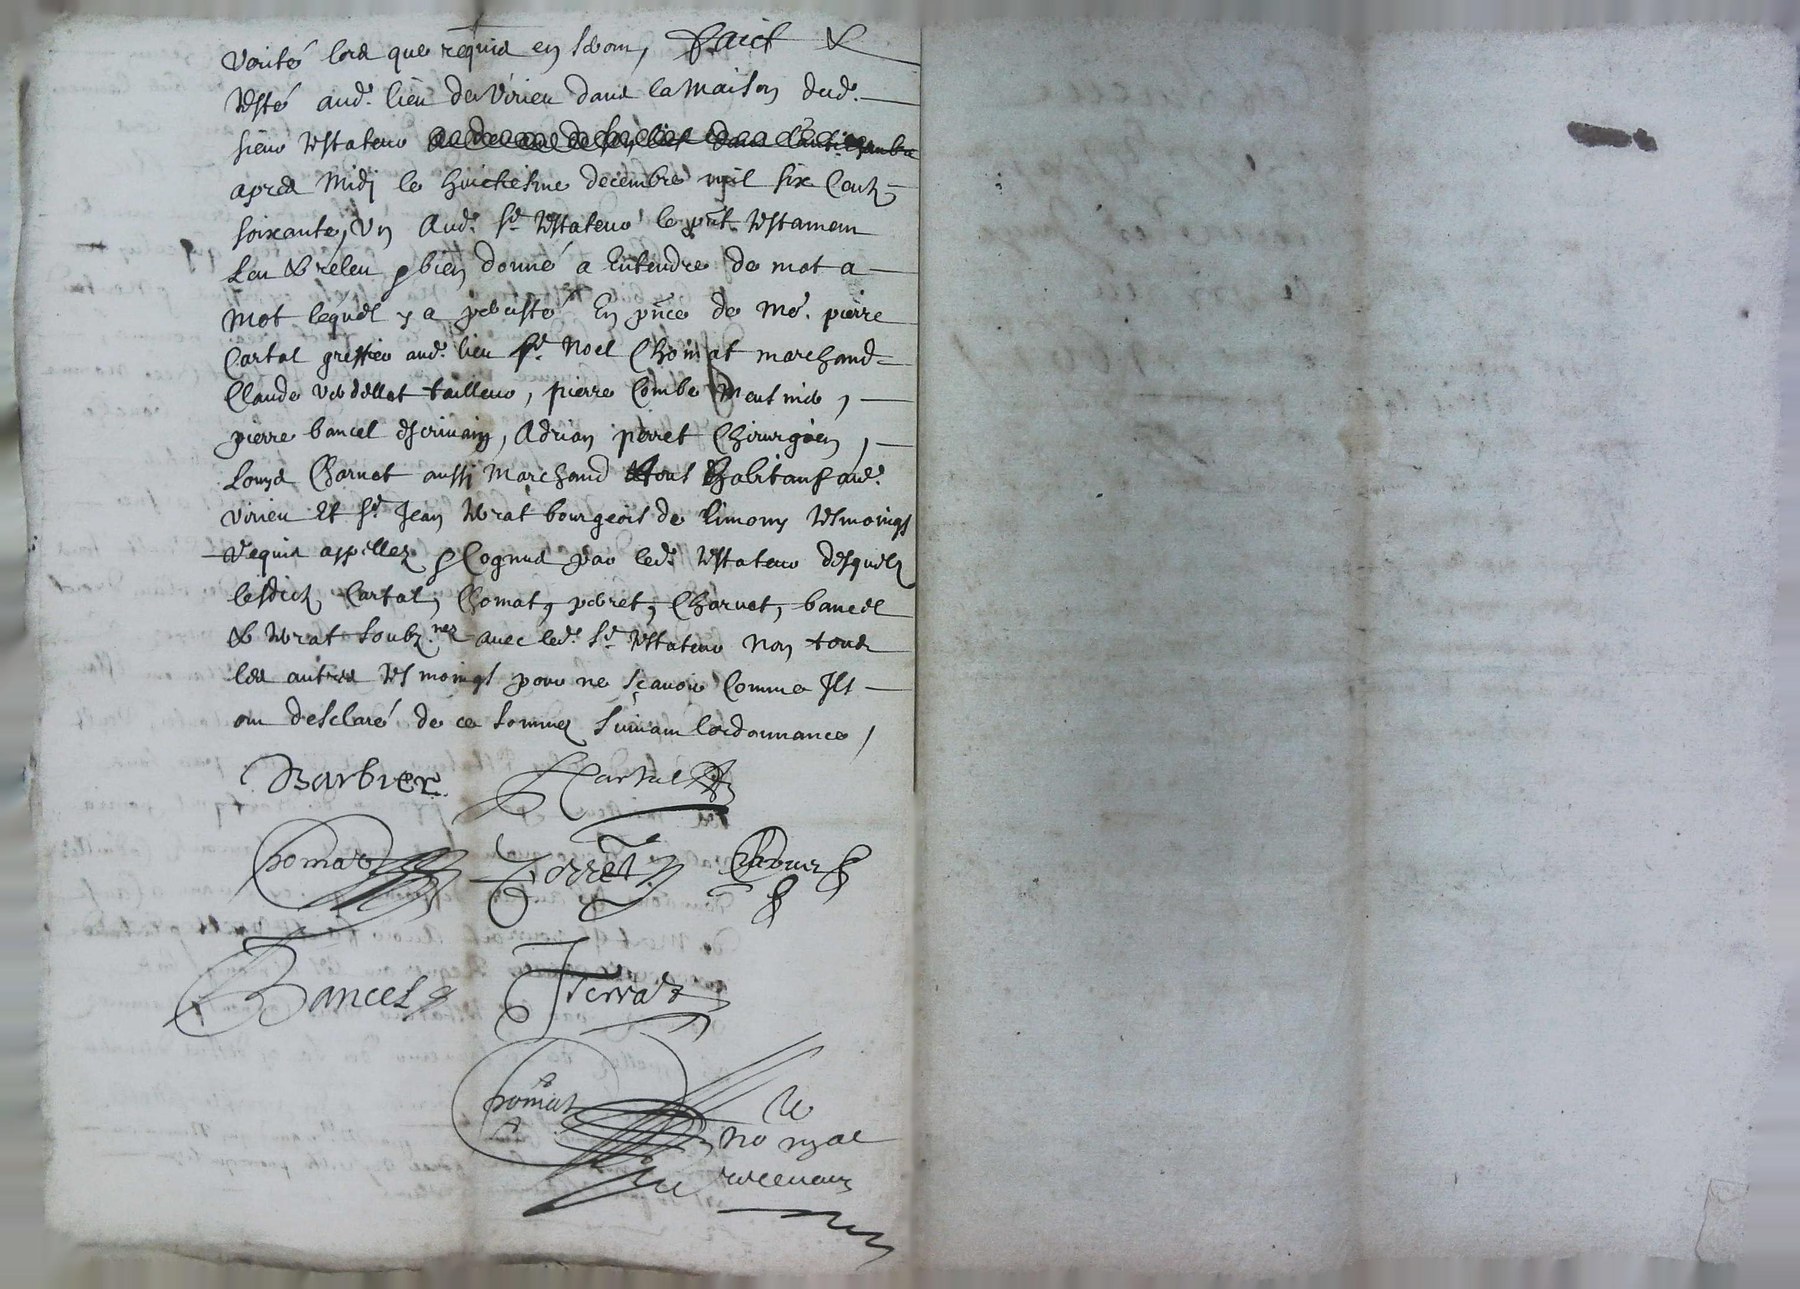 verité lors que requis en seron, Faict &
testé aud. lieu de Virieu dans la maison dud.
sieur testateur
apres midj le huictiesme decembre mil six centz
soixante, Un Aud. Sr. testateur le pnt. testament
Leu & releu & bien donné a Entendre de mot a
mot lequel y a percisté En pnce de Me. pierre
Cartal greffier aud. lieu Sr. Noel Chomat marchand
Claude verdellet tailleur, pierre Combe Meusnier,
pierre bancel escrivain, Adrian perret Chirurgien,
Louys Charvet aussi Marchand tous habitans aud.
Virieu Et Sr. Jean terrat bourgeois de Limony tesmoings
requis appellez & Cognus par led. testateur desquelz
lesdictz Cartal, Chomat, perret, Charvet, bancel
& terrat soubz.nez avec led. Sr. testateur Non tous
les autres tesmoings pour ne sçavoir Comme Ilz
ont desclaré de ce sommez suivant lordonnance,
Barbier. Cartal
Chomat Perret Charvet
Bancel J Terrat
Chomat
Nore Royal
recevant